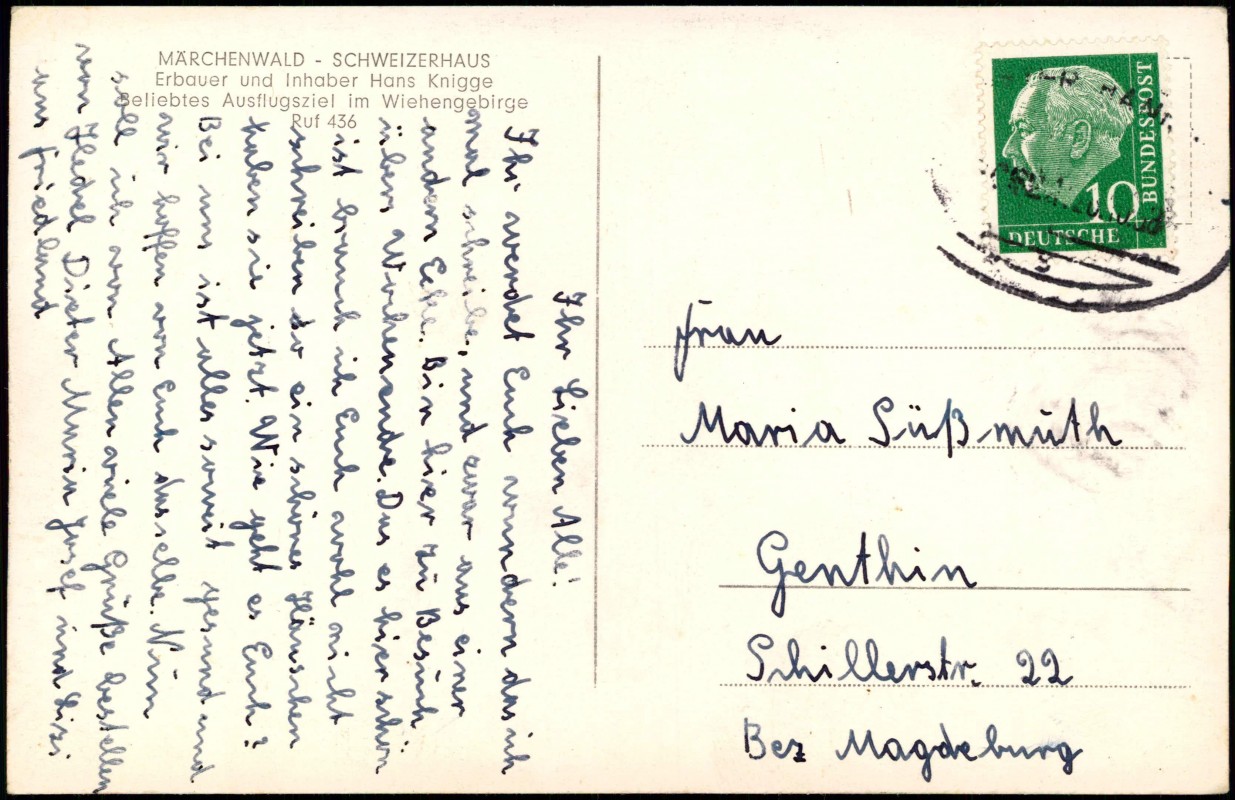 MÄRCHENWALD - SCHWEIZERHAUS
Erbauer und Inhaber Hans Knigge
Beliebtes Ausflugsziel im Wiehengebirge
Ruf 436
Ihr Lieben Alle!
Ihr werdet Euch wundern das ich
mal schreibe, und zwar aus einer
andern Ecke. Bin hier zu Besuch
übers Wochenende. Das es hier schön
ist brauch ich Euch wohl nicht
schreiben so ein schönes Häuschen
haben sie jetzt. Wie geht es Euch?
Bei uns ist alles soweit gesund und
wir hoffen von Euch dasselbe. Nun
soll ich von Allen viele Grüße bestellen
von Hedel Dieter Maria Josef und Lizi
aus Friedland
DEUTSCHE
BUNDESPOST
10
Frau
Maria Süßmuth
Genthin
Schillerstr. 22
Bez Magdeburg